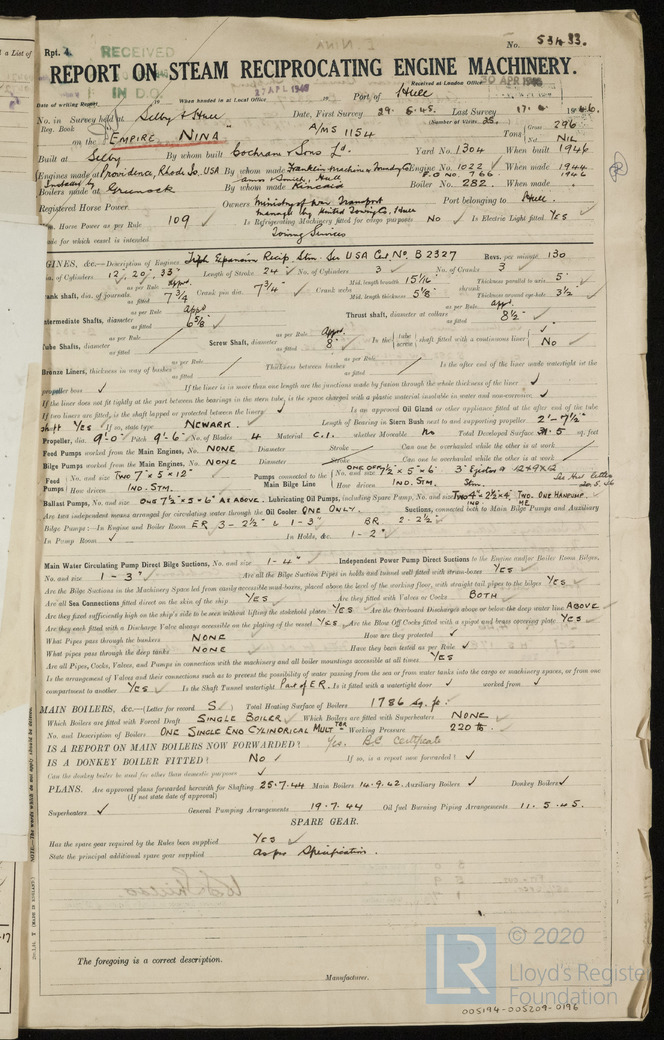 Rpt. 4.
RECEIVED
IN D.O.
No. 53433.
REPORT ON STEAM RECIPROCATING ENGINE MACHINERY.
Received at London Office 30 APR 1946
Date of writing Report 19 When handed in at Local Office 27 APL 1946 19 Port of Hull
No. in Survey held at Selby & Hull Date, First Survey 29.6.45. Last Survey 17. 1946.
Reg. Book (Number of Visits 35.)
on the "EMPIRE NINA" A/MS 1154 Tons Gross 296 Net NIL
Built at Selby By whom built Cochrane & Sons Ld. Yard No. 1304 When built 1946
Engines made at Providence, Rhode Is. USA By whom made Franklin Machine & Foundry Co Engine No. 1022 When made 1944
Amos & Smith, Hull 766 1946
Boilers made at Greenock By whom made Kincaid Boiler No. 282. When made
Registered Horse Power Owners Ministry of War Transport Port belonging to Hull.
manager by United Towing Co. Hull
Horse Power as per Rule 109 Is Refrigerating Machinery fitted for cargo purposes NO Is Electric Light fitted YES
for which vessel is intended Towing Services
GINES, &c.—Description of Engines Triple Expansion Recip. Stm. USA Cat. No. B2327 Revs. per minute 130
of Cylinders 12", 20", 33" Length of Stroke 24" No. of Cylinders 3 No. of Cranks 3
shaft, dia. of journals as per Rule Appd. as fitted 7 3/4 Crank pin dia. 7 3/4" Crank webs Mid. length breadth 15 1/16" Thickness parallel to axis 5"
Mid. length thickness 5 1/8 shrunk Thickness around eye-hole 3 1/2
Intermediate Shafts, diameter as per Rule Appd as fitted 6 5/8 Thrust shaft, diameter at collars as per Rule appd. as fitted 8 1/2
Tube Shafts, diameter as per Rule as fitted Screw Shaft, diameter as per Rule Appd. as fitted 8" Is the tube screw shaft fitted with a continuous liner No
Bronze Liners, thickness in way of bushes as per Rule as fitted Thickness between bushes as per Rule as fitted Is the after end of the liner made watertight in the
propeller boss If the liner is in more than one length are the junctions made by fusion through the whole thickness of the liner
If the liner does not fit tightly at the part between the bearings in the stern tube, is the space charged with a plastic material insoluble in water and non-corrosive
If two liners are fitted, is the shaft lapped or protected between the liners Is an approved Oil Gland or other appliance fitted at the after end of the tube
shaft YES If so, state type NEWARK. Length of Bearing in Stern Bush next to and supporting propeller 2'-7 1/2"
Propeller, dia. 9'-0" Pitch 9'-6" No. of Blades 4 Material C.I. whether Moveable No Total Developed Surface 31.5 sq. feet
Feed Pumps worked from the Main Engines, No. NONE Diameter Stroke Can one be overhauled while the other is at work
Bilge Pumps worked from the Main Engines, No. NONE Diameter Stroke Can one be overhauled while the other is at work
Feed Pumps No. and size TWO 7" x 5" x 12" Pumps connected to the Main Bilge Line No. and size ONE OFF 7 1/2" x 5" x 6" 3" Ejector
How driven IND. STM. How driven IND. STM. Stm.
Ballast Pumps, No. and size ONE 7 1/2" x 5" x 6" AS ABOVE. Lubricating Oil Pumps, including Spare Pump, No. and size
Are two independent means arranged for circulating water through the Oil Cooler ONE ONLY. Suctions, connected both to Main Bilge Pumps and Auxiliary
Bilge Pumps:—In Engine and Boiler Room ER 3 - 2 1/2" & 1 - 3" BR. 2 - 2 1/2"
In Pump Room In Holds, &c. 1 - 2"
Main Water Circulating Pump Direct Bilge Suctions, No. and size 1 - 4" Independent Power Pump Direct Suctions to the Engine and/or Boiler Room Bilges,
No. and size 1 - 3" Are all the Bilge Suction Pipes in holds and tunnel well fitted with strum-boxes YES
Are the Bilge Suctions in the Machinery Space led from easily accessible mud-boxes, placed above the level of the working floor, with straight tail pipes to the bilges YES
Are all Sea Connections fitted direct on the skin of the ship YES Are they fitted with Valves or Cocks BOTH
Are they fixed sufficiently high on the ship's side to be seen without lifting the stokehold plates YES Are the Overboard Discharges above or below the deep water line ABOVE
Are they each fitted with a Discharge Valve always accessible on the plating of the vessel YES Are the Blow Off Cocks fitted with a spigot and brass covering plate YES
What Pipes pass through the bunkers NONE How are they protected
What pipes pass through the deep tanks NONE Have they been tested as per Rule
Are all Pipes, Cocks, Valves, and Pumps in connection with the machinery and all boiler mountings accessible at all times YES
Is the arrangement of Valves and their connections such as to prevent the possibility of water passing from the sea or from water tanks into the cargo or machinery spaces, or from one
compartment to another YES Is the Shaft Tunnel watertight Part of E.R. Is it fitted with a watertight door worked from
MAIN BOILERS, &c.—(Letter for record S) Total Heating Surface of Boilers 1786 sq. ft.
Which Boilers are fitted with Forced Draft SINGLE BOILER Which Boilers are fitted with Superheaters NONE
No. and Description of Boilers ONE SINGLE END CYLINDRICAL MULTTBR Working Pressure 220 lb.
IS A REPORT ON MAIN BOILERS NOW FORWARDED? Yes. BC Certificate
IS A DONKEY BOILER FITTED? No If so, is a report now forwarded?
Can the donkey boiler be used for other than domestic purposes
PLANS. Are approved plans forwarded herewith for Shafting 25.7.44 Main Boilers 14.9.42. Auxiliary Boilers Donkey Boilers
(If not state date of approval)
Superheaters General Pumping Arrangements 19.7.44 Oil fuel Burning Piping Arrangements 11.5.45.
SPARE GEAR.
Has the spare gear required by the Rules been supplied YES
State the principal additional spare gear supplied As per Specification.
The foregoing is a correct description.
Manufacturer.
© 2020
LR
Lloyd's Register
Foundation
005194-005209-0196